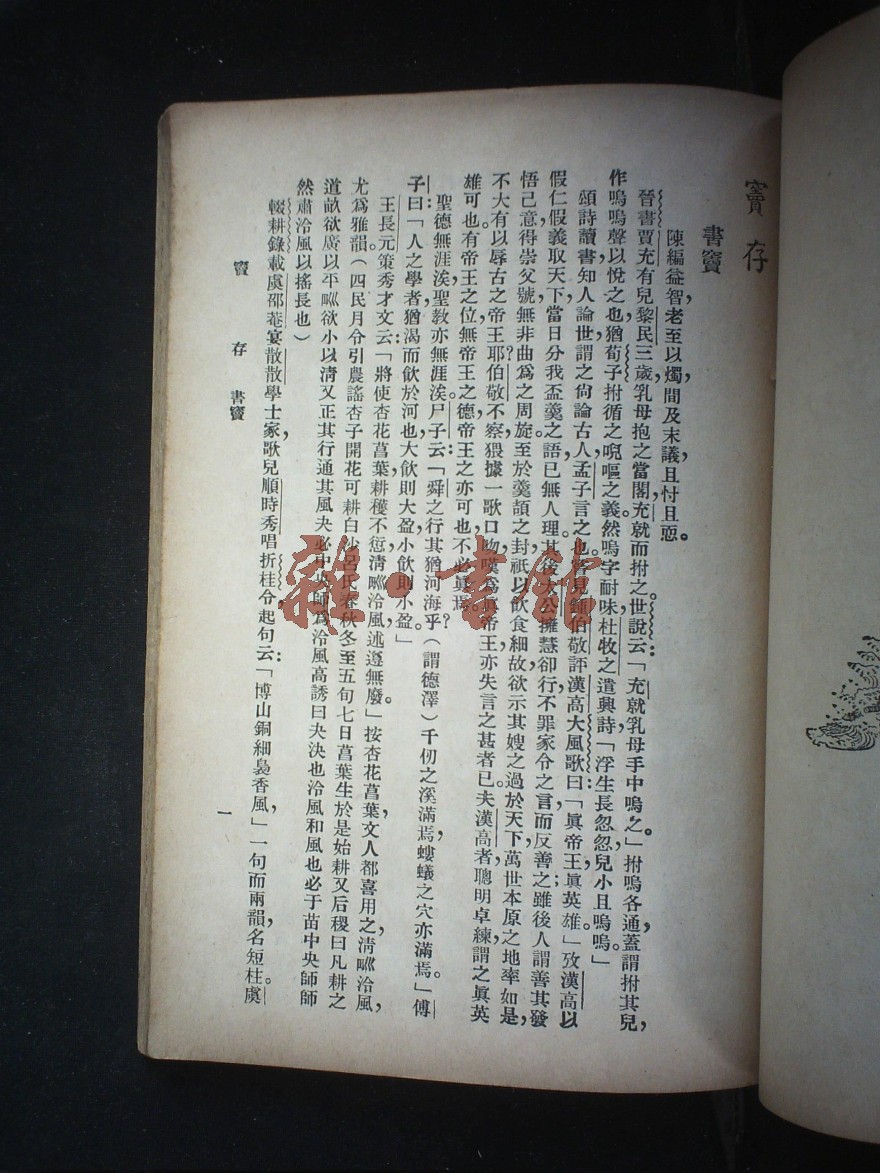 竇存
書竇
陳編益智，老至以燭，間及末議，且忖且恧。
晉書賈充有兒黎民，三歲，乳母抱之當閣，充就而拊之。世說云：「充就乳母手中嗚之。」拊嗚各通，蓋謂拊其兒，
作嗚嗚聲以悅之也，猶荀子拊循之，唲嘔之義。然嗚字耐味，杜牧之遣興詩「浮生長忽忽，兒小且嗚嗚」
頌詩讀書，知人論世，謂之尙論古人，孟子言之也。嘗見鍾伯敬評漢高大風歌曰：「眞帝王眞英雄。」攷漢高以
假仁假義取天下，當日分我盃羹之語，已無人理。其後太公擁慧卻行，不罪家令之言，而反善之；雖後人謂善其發
悟己意，得崇父號，無非曲爲之周旋。至於羹頡之封，祇以飲食細故，欲示其嫂之過於天下萬世，本原之地率如是，
不大有以辱古之帝王耶？伯敬不察，猥據一歌口吻，嘆爲眞帝王，亦失言之甚者已。夫漢高者，聰明卓練，謂之眞英
雄可也。有帝王之位，無帝王之德，帝王之亦可也，不必眞焉。
聖德無涯涘，聖敎亦無涯涘。尸子云：「舜之行其猶河海乎？（謂德澤）千仞之溪滿焉，螻蟻之穴亦滿焉。」傅
子曰：「人之學者，猶渴而飲於河也，大飲則大盈，小飲則小盈。」
王長元策秀才文云：「將使杏花菖葉，耕穫不愆，淸甽泠風，述遵無廢。」按杏花菖葉，文人都喜用之，淸甽泠風，
尤爲雅韻。（四民月令引農謠杏子開花可耕白沙呂氏春秋冬至五旬七日菖葉生於是始耕又后稷曰凡耕之
道畝欲廣以平甽欲小以淸又正其行通其風夬必中央師爲泠風高誘曰夬決也泠風和風也必于苗中央師師
然肅泠風以搖長也）
輟耕錄載虞邵菴宴散散學士家，歌兒順時秀唱折桂令，起句云：「博山銅細裊香風，」一句而兩韻，名短柱。虞
竇存 書竇
一
雜·書館